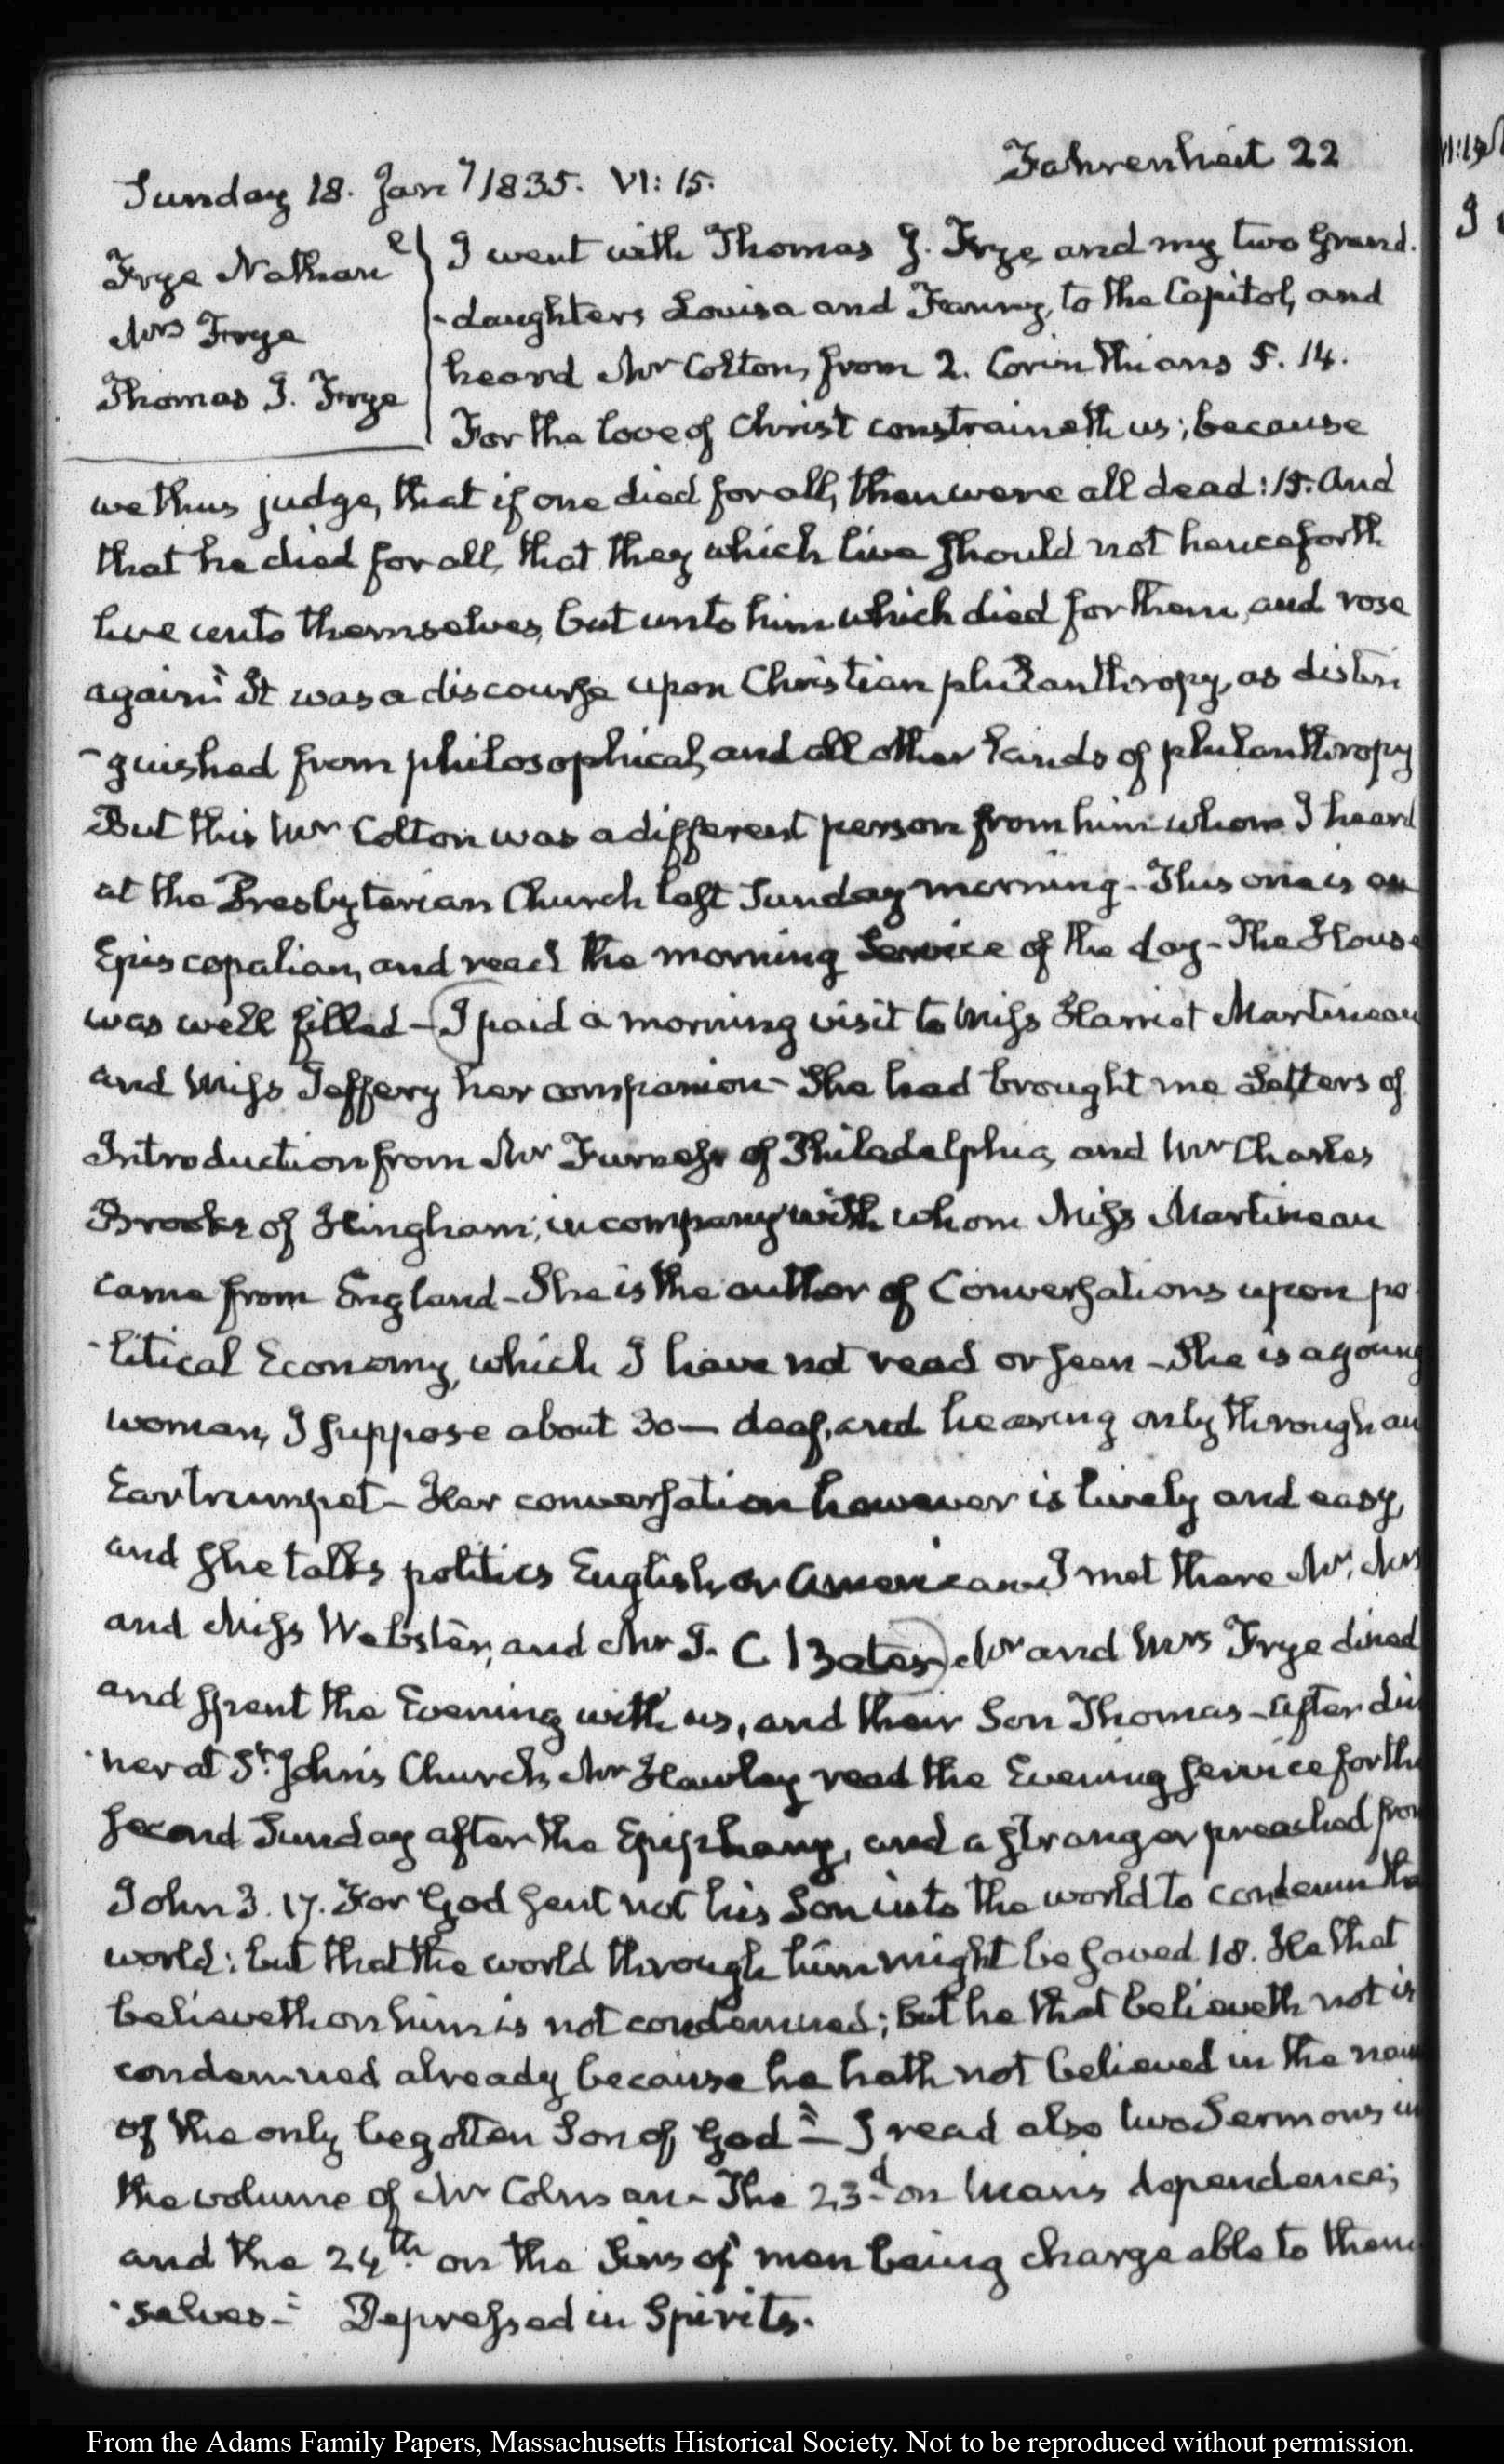 Fahrenheit 22
Sunday 18. Jany 1835. VI:15.
Frye Nathanl
Mrs Frye
Thomas J. Frye
I went with Thomas J. Frye and my two Grand-
-daughters Louisa and Fanny, to the Capitol, and
heard Mr Colton, from 2. Corinthians 5. 14.
For the love of Christ constraineth us; because
we thus judge, that if one died for all, then were all dead: 15. And
that he died for all, that they which live should not henceforth
live unto themselves, but unto him which died for them, and rose
again" It was a discourse upon Christian philanthropy, as distin
-guished from philosophical, and all other kinds of philanthropy
But this Mr Colton was a different person from him whom I heard
at the Presbyterian Church last Sunday morning - This one is an
Episcopalian, and read the morning Service of the day - The House
was well filled - I paid a morning visit to Miss Harriet Martineau
and Miss Jeffery her companion - She had brought me Letters of
Introduction from Mr Furness of Philadelphia, and Mr Charles
Brooks of Hingham, in company with whom Miss Martineau
came from England - She is the author of Conversations upon po-
-litical Economy, which I have not read or seen - She is a young
woman, I suppose about 30 — deaf, and hearing only through an
Eartrumpet - Her conversation however is lively and easy,
and she talks politics English or American I met there Mr, Mrs
and Miss Webster, and Mr I. C Bates - Mr and Mrs Frye dined
and spent the Evening with us, and their Son Thomas - After din
-ner at St. John's Church, Mr Hawley read the Evening service for the
second Sunday after the Epiphany, and a stranger preached from
John 3. 17. For God sent not his Son into the world to condemn the
world: but that the world through him might be saved 18. He that
believeth on him is not condemned; but he that believeth not is
condemned already because he hath not believed in the name
of the only begotten Son of God" - I read also two Sermons in
the volume of Mr Colman - The 23d on Man's dependence;
and the 24th on the Sins of men being chargeable to them
-selves - Depressed in Spirits.
From the Adams Family Papers, Massachusetts Historical Society. Not to be reproduced without permission.